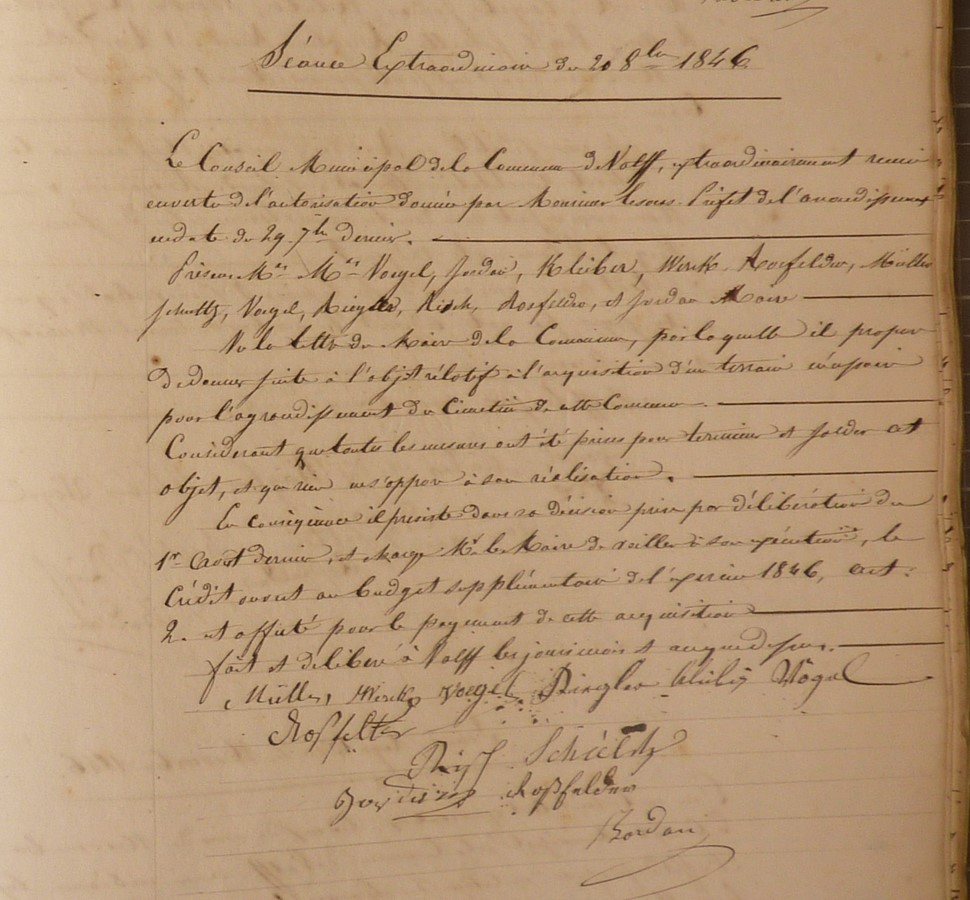 Séance Extraordinaire du 20 8bre 1846
Le Conseil Municipal de la Commune de Valff, extraordinairement reuni
en vertu de l'autorisation donnée par Monsieur le sous-Préfet de l'arrondissement
en date du 29 7bre dernier.
Présens Mrs Voegel, Jordan, Kleiber, Werck, Rosfelder, Müller
Schultz, Voegel, Riegler, Risch, Rosfelder, et Jordan Maire
Vu la lettre du Maire de la Commune, par laquelle il propose
de donner suite à l'objet rélatif à l'acquisition d'un terrain nécessaire
pour l'agrandissement du Cimetière de cette Commune
Considerant que toutes les mesures ont été prises pour terminer et solder cet
objet, et que rien ne s'oppose à son réalisation.
En conséquence il persiste dans sa décision prise par délibération du
1r Aout dernier, et charge Mr le Maire de veiller à son exécution, le
Crédit ouvert au budget supplémentaire de l'exercice 1846, art:
2. est affecté pour le payement de cette acquisition
fait et deliberé à Valff les jour mois et an que dessus.
Müller, Werck, Voegel, Riegler Vögel
Rosfelder
Schültz
Roßfelder
Jordan